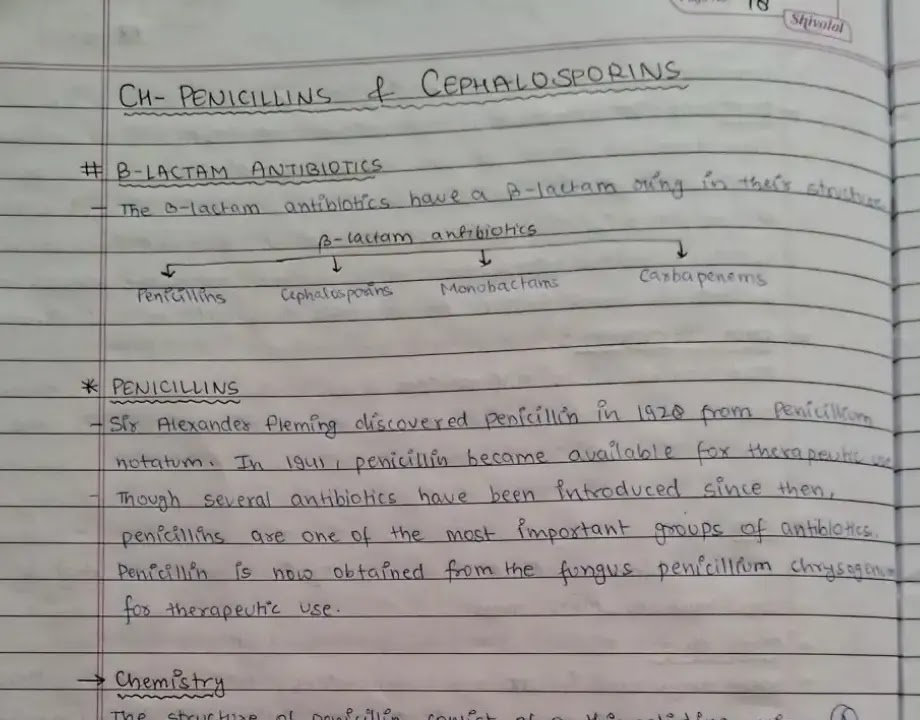 18
Shivalal
CH- PENICILLINS & CEPHALOSPORINS
# B-LACTAM ANTIBIOTICS
- The B-lactam antibiotics have a β-lactam ring in their structure
β-lactam antibiotics
Penicillins Cephalosporins Monobactams Carbapenems
* PENICILLINS
- Sir Alexander Fleming discovered penicillin in 1928 from Penicillium
notatum. In 1941, penicillin became available for therapeutic use
- Though several antibiotics have been introduced since then,
penicillins are one of the most important groups of antibiotics.
Penicillin is now obtained from the fungus penicillium chrysogenum
for therapeutic use.
→ Chemistry
The structure of penicillin consist of a